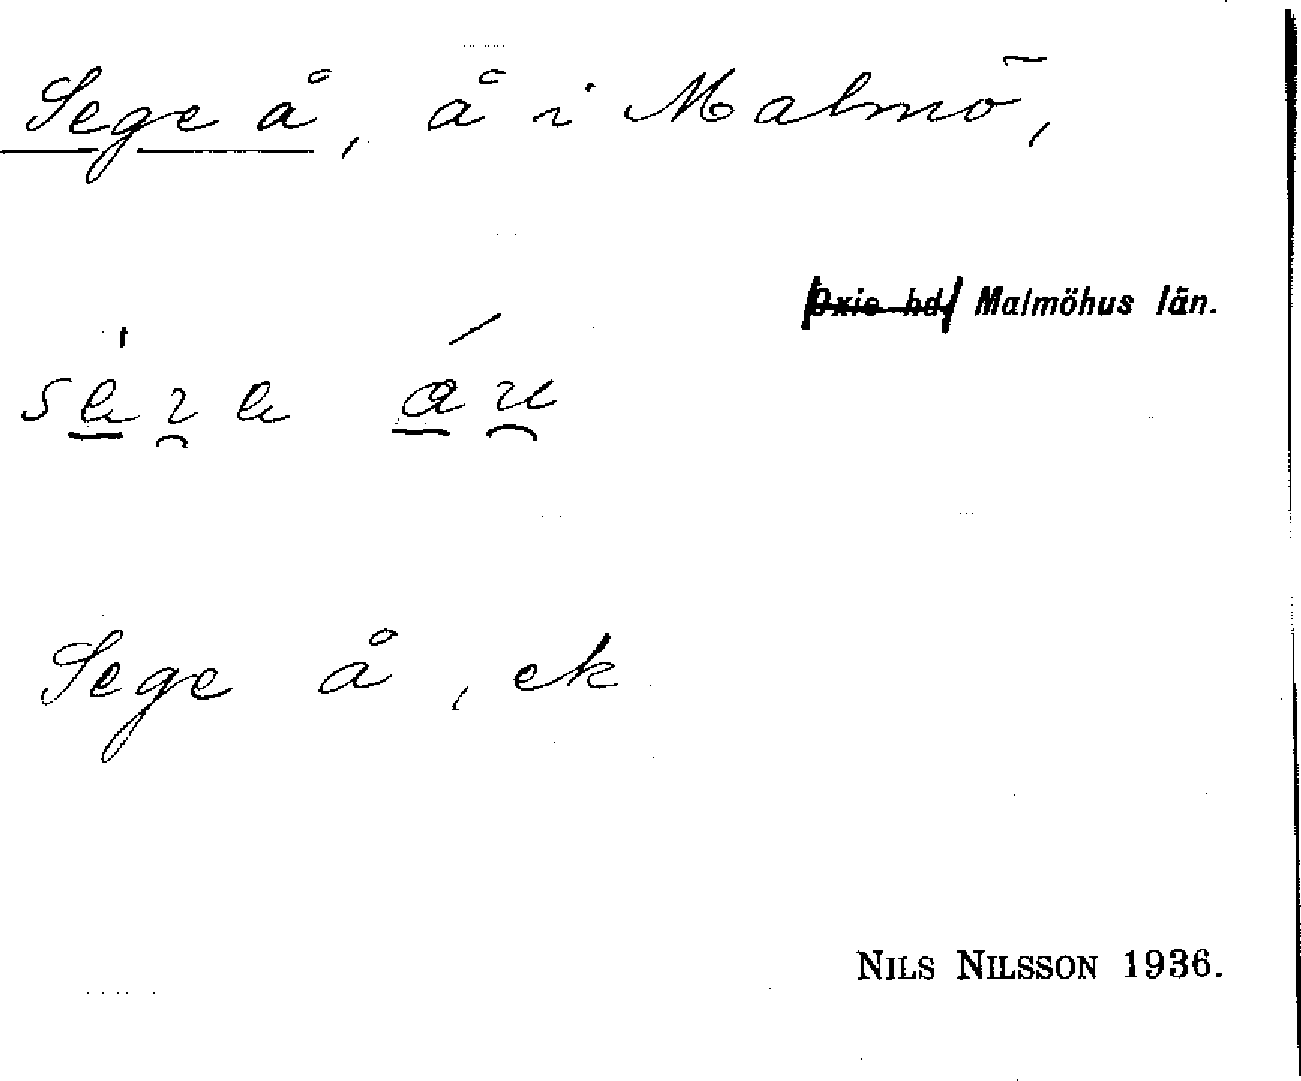 Sege å, å i Malmö,
Oxie hd, Malmöhus län.
Sege å, ek
NILS NILSSON 1936.